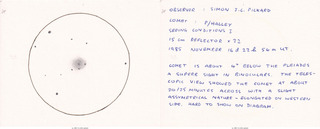 OBSERVER : SIMON J.L. PICKARD
COMET : P/HALLEY
SEEING CONDITIONS I
15 CM REFLECTOR x 33
1985 NOVEMBER 16 d 23 h 54 m UT.
COMET IS ABOUT 4° BELOW THE PLEIADES
A SUPERB SIGHT IN BINOCULARS. THE TELES-
COPIC VIEW SHOWED THE COMET AT ABOUT
20/25 MINUTES ACROSS WITH A SLIGHT
ASSYMETRICAL NATURE - ELONGATED ON WESTERN
SIDE. HARD TO SHOW ON DIAGRAM.